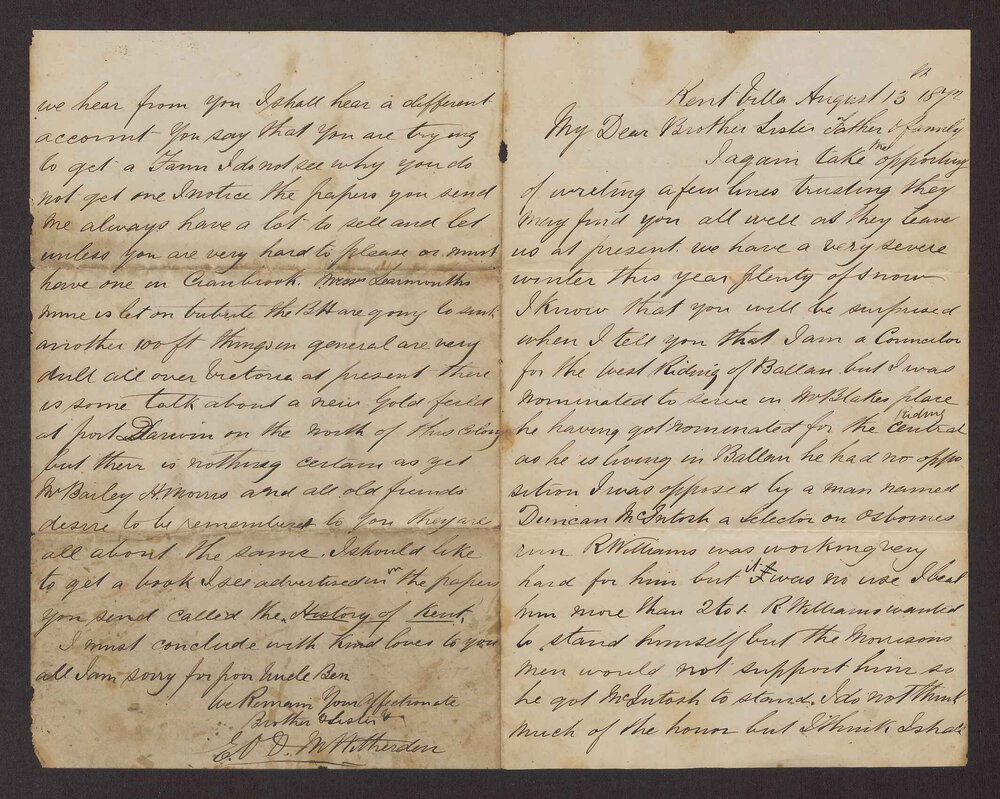 Kent Villa August 13 1872
My Dear Brother Sister Father & family
I again take the opportuny
of writing a few lines trusting they
may find you all well as they leave
us at present we have a very severe
winter this year plenty of snow
I know that you will be surprised
when I tell you that I am a Councilor
for the west Riding of Ballan but I was
nominated to serve in Mr Blakes place
he having got nominated for the central riding
as he is living in Ballan he had no oppo
sition I was opposed by a man named
Duncan McIntosh a Selector on Osbornes
run R Williams was working very
hard for him but it was no use I beat
him more than 2 to 1. R Williams wanted
to stand himself but the Morrisons
men would not support him so
he got McIntosh to stand, I do not think
much of the honor but I think I shall
we hear from you I shall hear a different
account You say that you are trying
to get a Farm I do not see why you do
not get one I notice the papers you send
me always have a lot to sell and let
unless you are very hard to please or must
have one in Cranbrook. Learmonths
mine is let on tribute the BH are going to sink
another 100 ft things in general are very
dull all over Victoria at present there
is some talk about a new Gold feild
at port Darwin on the north of this colony
but their is nothing certain as yet
Mr Bailey H Morris and all old friends
desire to be remembered to you they are
all about the same. I should like
to get a book I see advertised in the papers
you send called the History of Kent,
I must conclude with kind loves to you
all I am sorry for poor Uncle Ben
We Remain Your Affectionate
Brother & Sister
E. & D. M Witherden